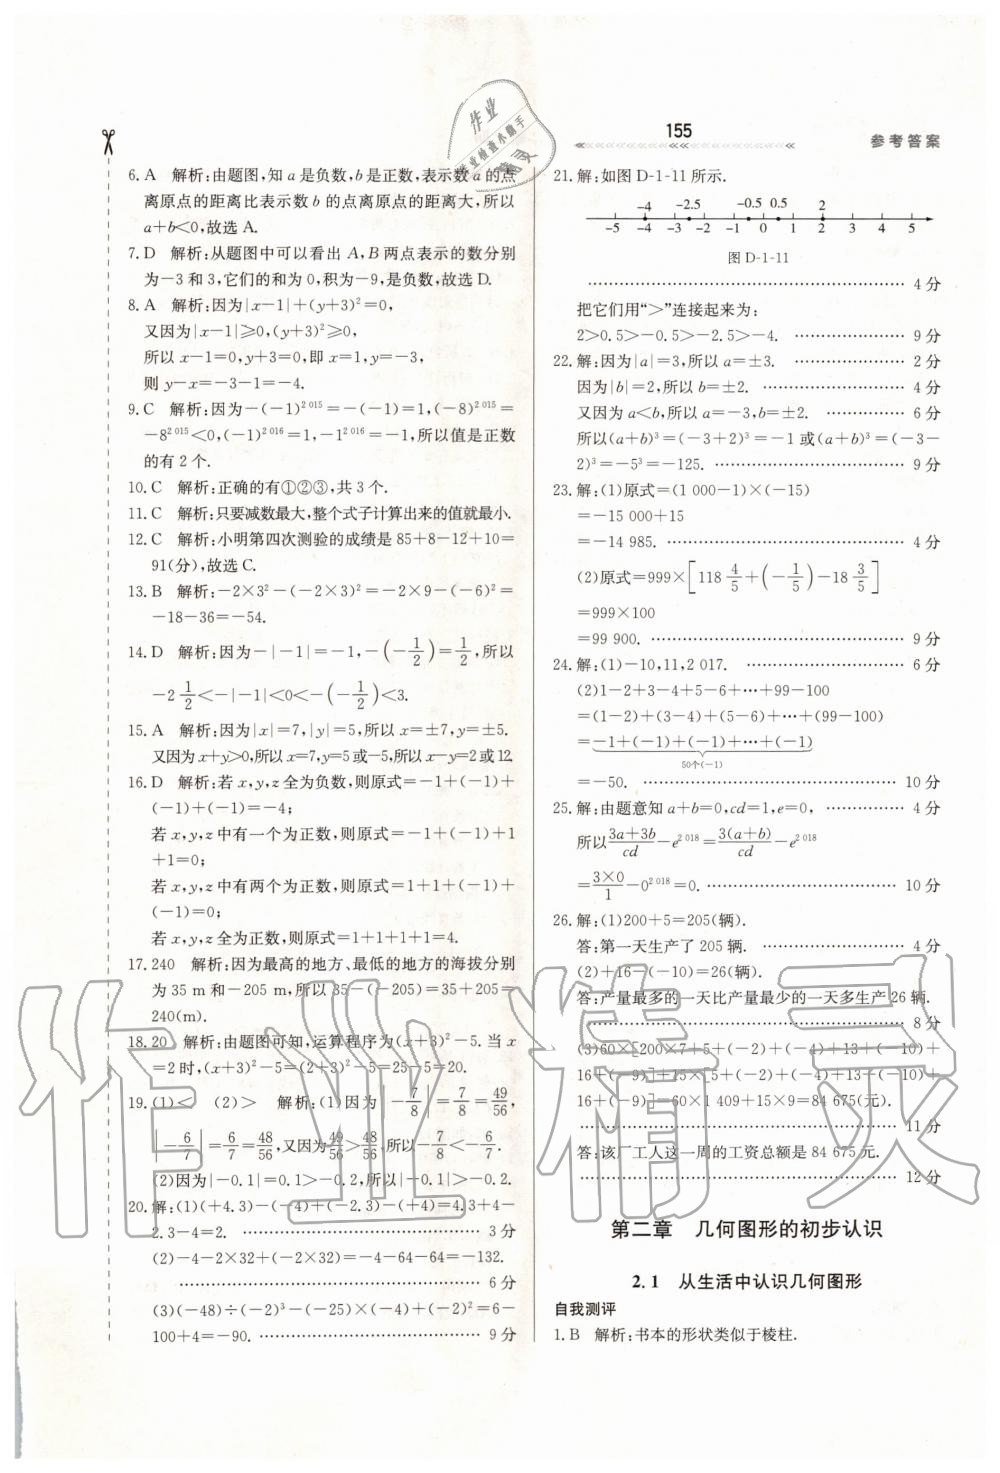 155
参考答案
6. A　解析:由题图,知 a 是负数,b 是正数,表示数 a 的点
离原点的距离比表示数 b 的点离原点的距离大,所以
a+b<0,故选 A.
7. D　解析:从题图中可以看出 A,B 两点表示的数分别
为−3 和 3,它们的和为 0,积为−9,是负数,故选 D.
8. A　解析:因为|x−1|+(y+3)²=0,
又因为|x−1|≥0,(y+3)²≥0,
所以 x−1=0,y+3=0,即 x=1,y=−3,
则 y−x=−3−1=−4.
9. C　解析:因为−(−1)²⁰¹⁵=−(−1)=1,(−8)²⁰¹⁵=
−8²⁰¹⁵<0,(−1)²⁰¹⁶=1,−1²⁰¹⁶=−1,所以值是正数
的有 2 个.
10. C　解析:正确的有①②③,共 3 个.
11. C　解析:只要减数最大,整个式子计算出来的值就最小.
12. C　解析:小明第四次测验的成绩是 85+8−12+10=
91(分),故选 C.
13. B　解析:−2×3²−(−2×3)²=−2×9−(−6)²=
−18−36=−54.
14. D　解析:因为−|−1|=−1,−(−1/2)=1/2,所以
−2 1/2<−|−1|<0<−(−1/2)<3.
15. A　解析:因为|x|=7,|y|=5,所以 x=±7,y=±5.
又因为x+y>0,所以x=7,y=5或−5,所以x−y=2或12.
16. D　解析:若 x,y,z 全为负数,则原式=−1+(−1)+
(−1)+(−1)=−4;
若 x,y,z 中有一个为正数,则原式=−1+(−1)+1
+1=0;
若 x,y,z 中有两个为正数,则原式=1+1+(−1)+
(−1)=0;
若 x,y,z 全为正数,则原式=1+1+1+1=4.
17. 240　解析:因为最高的地方、最低的地方的海拔分别
为 35 m 和−205 m,所以 35−(−205)=35+205=
240(m).
18. 20　解析:由题图可知,运算程序为(x+3)²−5. 当 x
=2 时,(x+3)²−5=(2+3)²−5=25−5=20.
19. (1)<　(2)>　解析:(1)因为|−7/8|=7/8=49/56,
|−6/7|=6/7=48/56,又因为49/56>48/56,所以−7/8<−6/7.
(2)因为|−0.1|=0.1>−0.2,所以|−0.1|>−0.2.
20. 解:(1)(+4.3)−(−4)+(−2.3)−(+4)=4.3+4−
2.3−4=2. ………… 3 分
(2)−4−2×32+(−2×32)=−4−64−64=−132.
………… 6 分
(3)(−48)÷(−2)³−(−25)×(−4)+(−2)²=6−
100+4=−90. ………… 9 分
21. 解:如图 D-1-11 所示.
−4 −2.5 −0.5 0.5 2
−5 −4 −3 −2 −1 0 1 2 3 4 5
图 D-1-11
………… 4 分
把它们用“>”连接起来为:
2>0.5>−0.5>−2.5>−4. ………… 9 分
22. 解:因为|a|=3,所以 a=±3. ………… 2 分
因为|b|=2,所以 b=±2. ………… 4 分
又因为 a<b,所以 a=−3,b=±2. ………… 6 分
所以(a+b)³=(−3+2)³=−1 或(a+b)³=(−3−
2)³=−5³=−125. ………… 9 分
23. 解:(1)原式=(1 000−1)×(−15)
=−15 000+15
=−14 985. ………… 4 分
(2)原式=999×[118 4/5+(−1/5)−18 3/5]
=999×100
=99 900. ………… 9 分
24. 解:(1)−10,11,2 017. ………… 6 分
(2)1−2+3−4+5−6+…+99−100
=(1−2)+(3−4)+(5−6)+…+(99−100)
=−1+(−1)+(−1)+…+(−1)
50个(−1)
=−50. ………… 10 分
25. 解:由题意知 a+b=0,cd=1,e=0, ………… 4 分
所以(3a+3b)/cd−e²⁰¹⁸=3(a+b)/cd−e²⁰¹⁸
=(3×0)/1−0²⁰¹⁸=0. ………… 10 分
26. 解:(1)200+5=205(辆).
答:第一天生产了 205 辆. ………… 4 分
(2)+16−(−10)=26(辆).
答:产量最多的一天比产量最少的一天多生产 26 辆.
………… 8 分
(3)60×[200×7+5+(−2)+(−4)+13+(−10)+
16+(−9)]+15×[5+(−2)+(−4)+13+(−10)+
16+(−9)]=60×1 409+15×9=84 675(元).
………… 11 分
答:该厂工人这一周的工资总额是 84 675元.
………… 12 分
第二章　几何图形的初步认识
2.1　从生活中认识几何图形
自我测评
1. B　解析:书本的形状类似于棱柱.
作业精灵